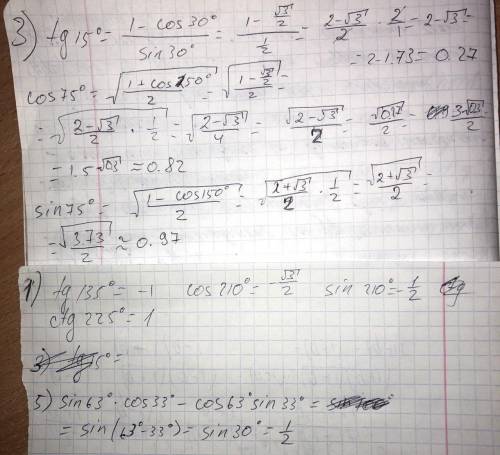 3) tg 15° = (1 - cos30°)/(sin 30°) = (1 - √3/2)/(1/2) = (2-√3)/2 · 2/1 = 2-√3 =
= 2-1.73 = 0.27
cos75° = √((1+cos150°)/2) = √((1-√3/2)/2) =
= √((2-√3)/2 · 1/2) = √((2-√3)/4) = √(2-√3)/2 =
= 1.5 ≈ 0.82
sin75° = √((1-cos150°)/2) = √((2+√3)/2 · 1/2) = √(2+√3)/2 =
= √3.73/2 ≈ 0.97
1) tg 135° = -1 cos 210° = -√3/2 sin 210° = -1/2
ctg 225° = 1
5) sin63° · cos33° - cos63° sin 33° =
= sin(63°-33°) = sin30° = 1/2